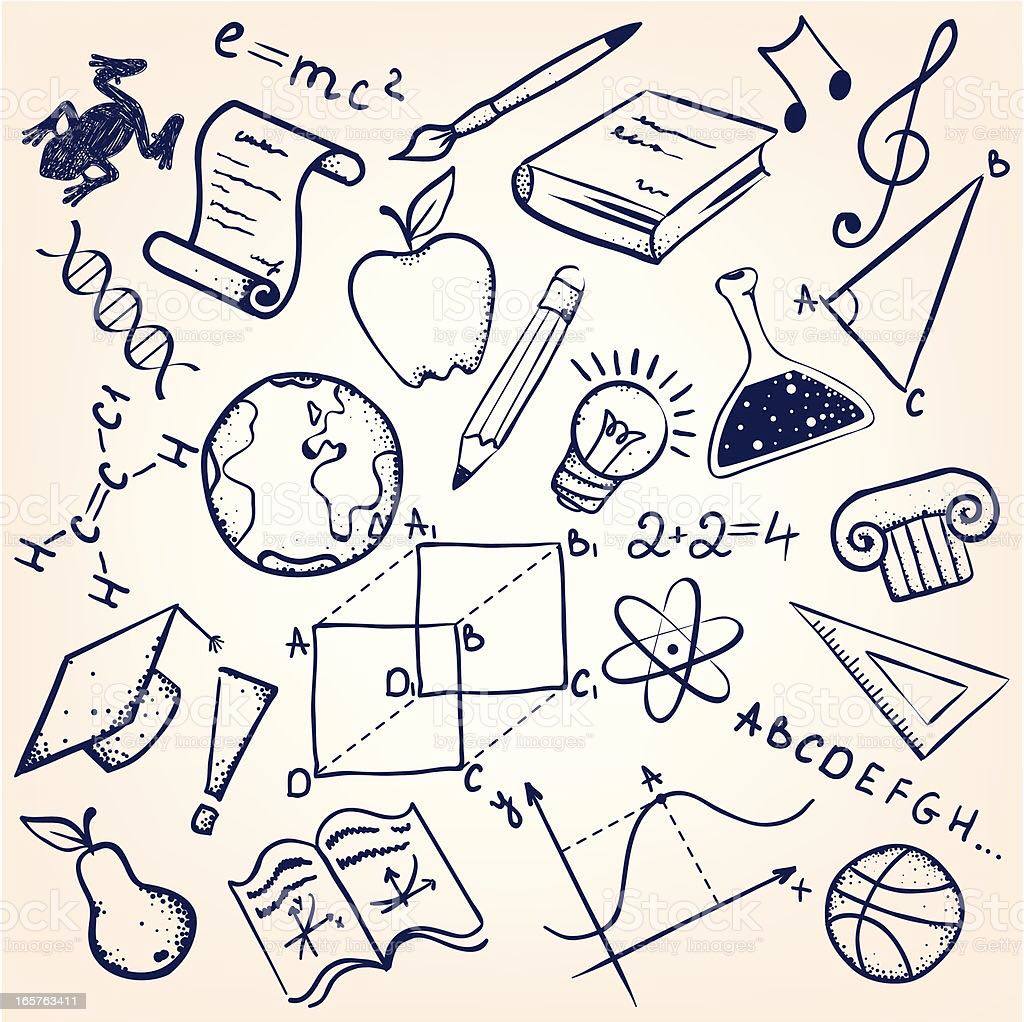 e=mc²
B
A
C
Cl
H
C=C
H
H
A₁
B₁
2+2=4
A
B
D₁
C₁
D
C
ABCDEFGH...
y
A
x
iStock
by Getty Images™
165763411